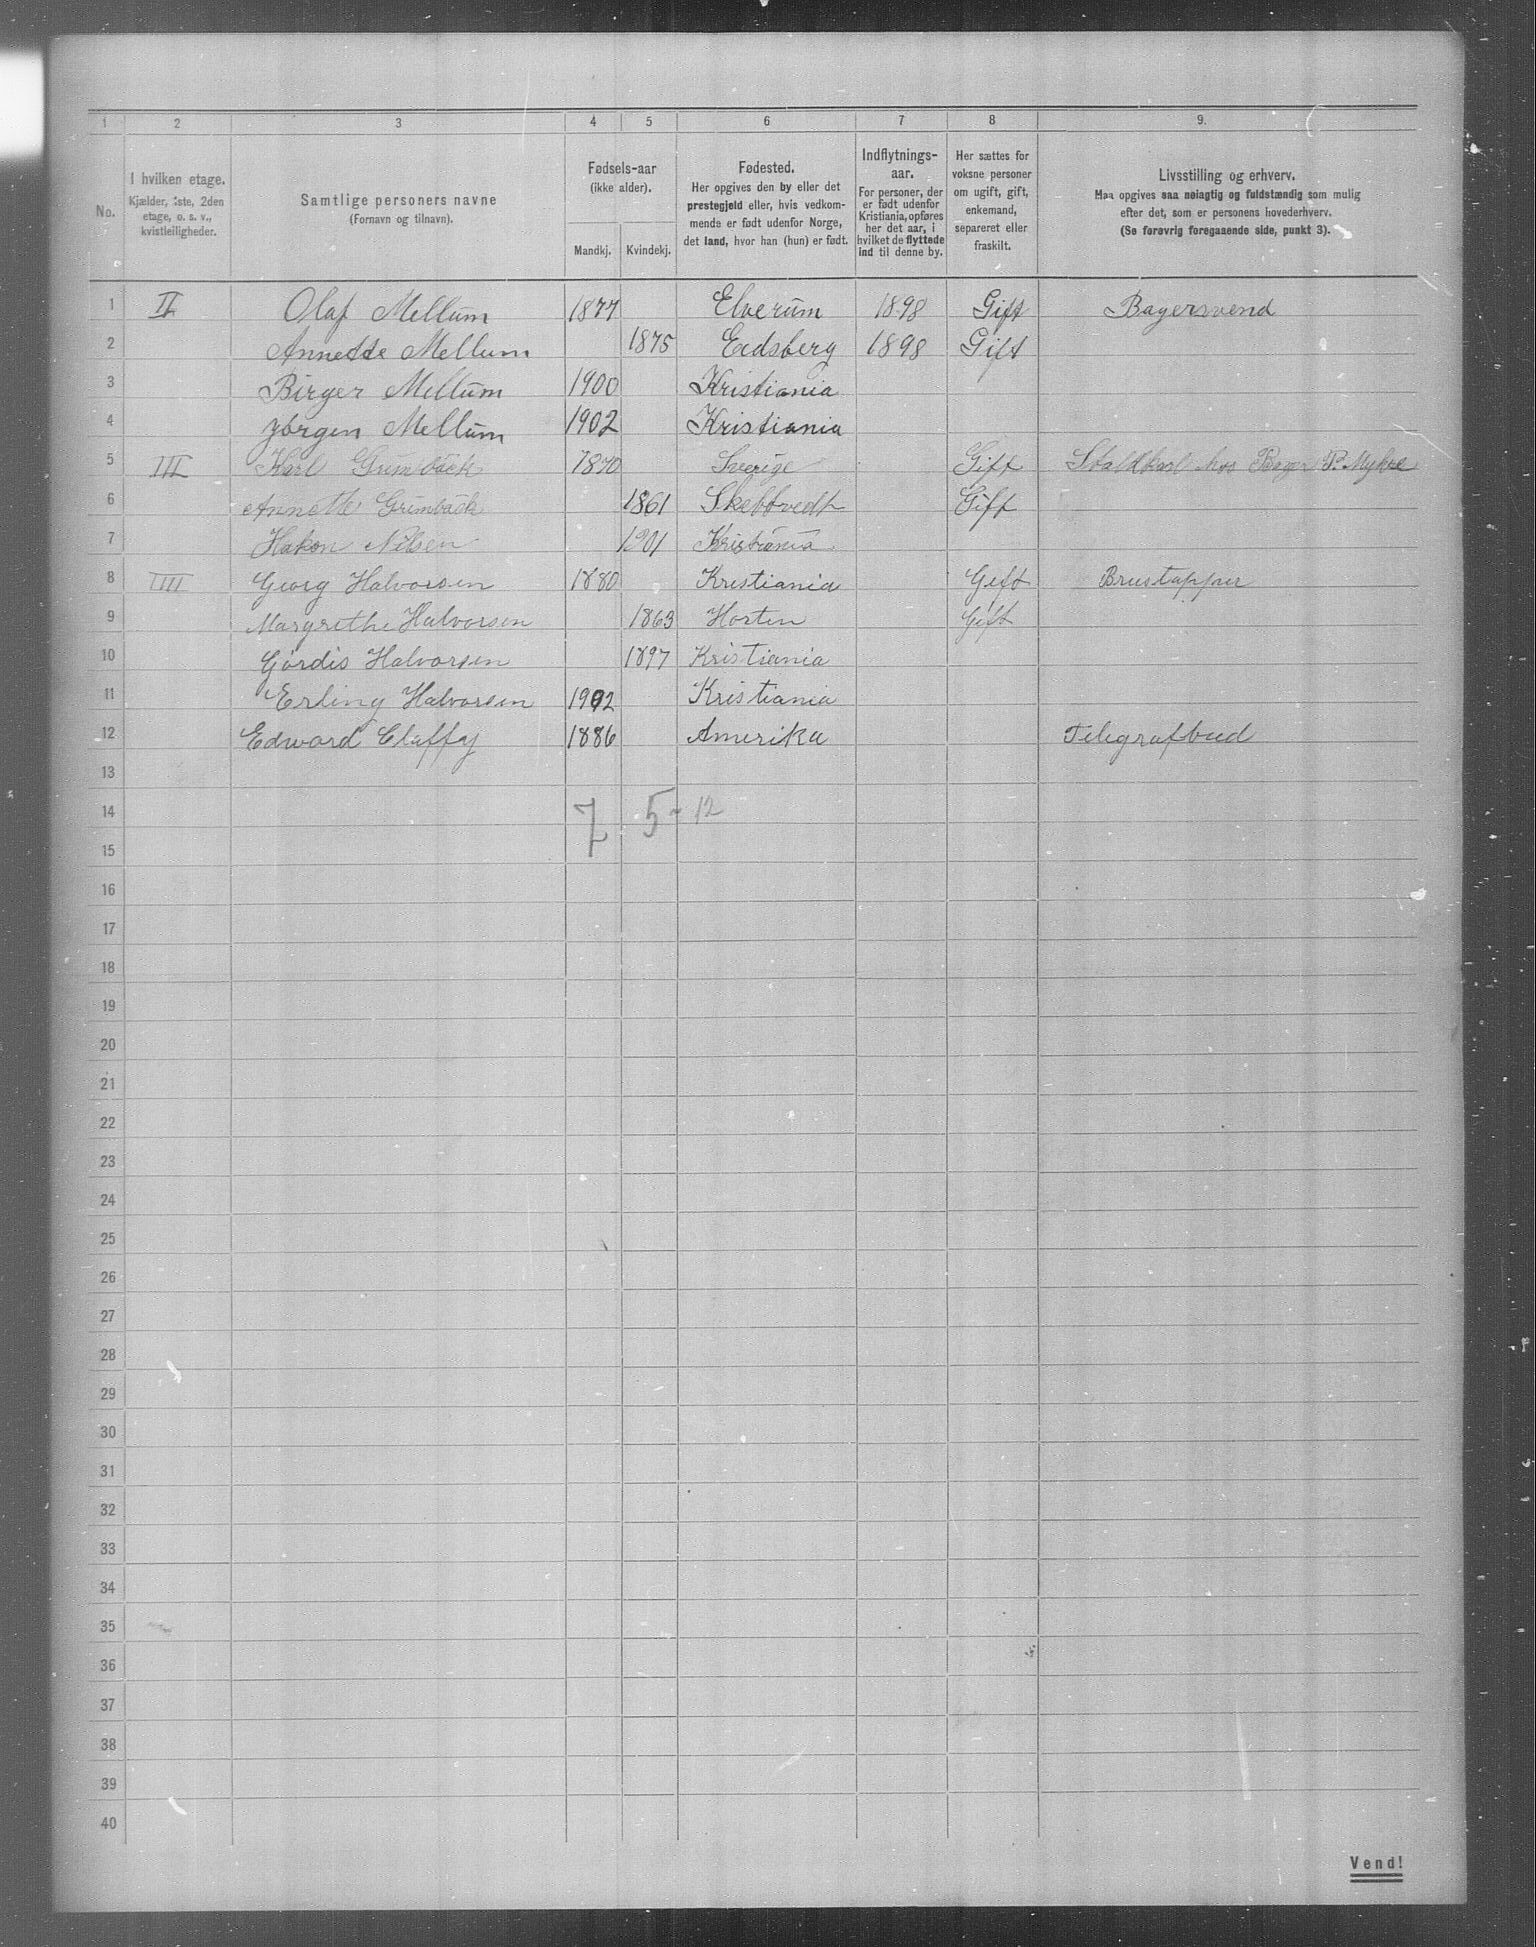 1 2 3 4 5 6 7 8 9.
No.
I hvilken etage.
Kjælder, 1ste, 2den
etage, o. s. v.,
kvistleiligheder.
Samtlige personers navne
(Fornavn og tilnavn).
Fødsels-aar
(ikke alder).
Mandkj. Kvindekj.
Fødested.
Her opgives den by eller det
prestegjeld eller, hvis vedkom-
mende er født udenfor Norge,
det land, hvor han (hun) er født.
Indflytnings-
aar.
For personer, der
er født udenfor
Kristiania, opføres
her det aar, i
hvilket de flyttede
ind til denne by.
Her sættes for
voksne personer
om ugift, gift,
enkemand,
separeret eller
fraskilt.
Livsstilling og erhverv.
Maa opgives saa nøiagtig og fuldstændig som mulig
efter det, som er personens hovederhverv.
(Se forøvrig foregaaende side, punkt 3).
1 II Olaf Mellum 1877 Elverum 1898 Gift Bagersvend
2 Annette Mellum 1875 Eidsberg 1898 Gift
3 Birger Mellum 1900 Kristiania
4 Jørgen Mellum 1902 Kristiania
5 III Karl Grumbäck 1870 Sverige Gift Staldkarl hos Bager P.
6 Annette Grumbäck 1861 Gift
7 Hakon Nilsen 1901 Kristiania
8 IIII Georg Halvorsen 1880 Kristiania Gift Brustapper
9 Margrethe Halvorsen 1863 Horten Gift
10 Gjördis Halvorsen 1897 Kristiania
11 Erling Halvorsen 1902 Kristiania
12 Edward Claffy 1886 Amerika Telegrafbud
13
14 7 5 - 12
15
16
17
18
19
20
21
22
23
24
25
26
27
28
29
30
31
32
33
34
35
36
37
38
39
40
Vend!